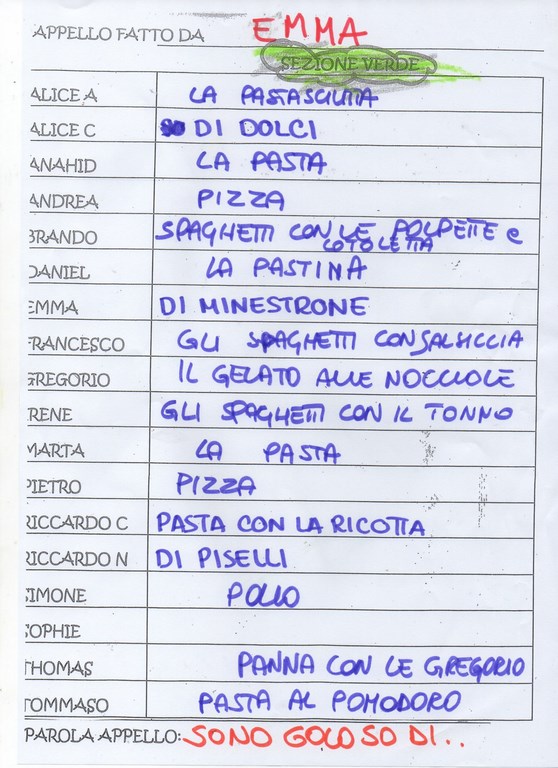 APPELLO FATTO DA EMMA
SEZIONE VERDE
ALICE A LA PASTASCIUTTA
ALICE C DI DOLCI
ANAHID LA PASTA
ANDREA PIZZA
BRANDO SPAGHETTI CON LE POLPETTE e
COTOLETTA
DANIEL LA PASTINA
EMMA DI MINESTRONE
FRANCESCO GLI SPAGHETTI CON SALSICCIA
GREGORIO IL GELATO ALLE NOCCIOLE
IRENE GLI SPAGHETTI CON IL TONNO
MARTA LA PASTA
PIETRO PIZZA
RICCARDO C PASTA CON LA RICOTTA
RICCARDO N DI PISELLI
SIMONE POLLO
SOPHIE
THOMAS PANNA CON LE GREGORIO
TOMMASO PASTA AL POMODORO
PAROLA APPELLO: SONO GOLOSO DI..